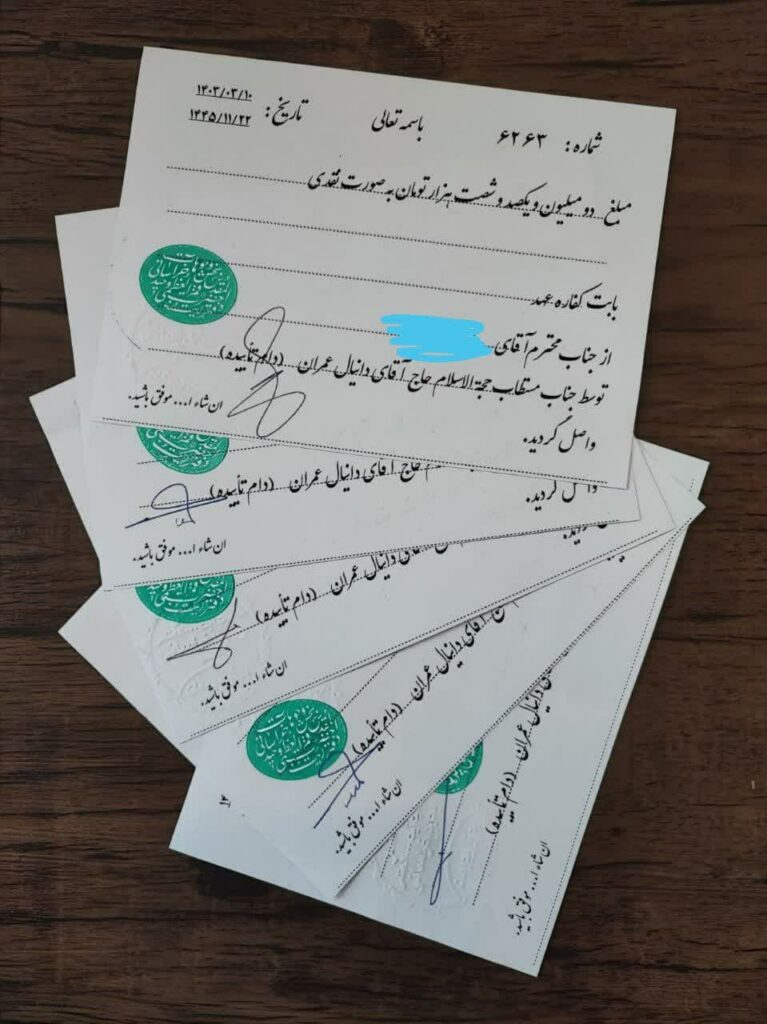 باسمه تعالی
شماره: ۶۲۶۳
تاریخ: ۱۴۰۳/۰۳/۱۰
۱۴۴۵/۱۱/۲۲
مبلغ دو میلیون و یکصد و شصت هزار تومان به صورت نقدی
بابت کفاره عهد
از جناب محترم آقای
توسط جناب مستطاب حجة الاسلام حاج آقای دانیال عمران (دام تأییده)
واصل گردید.
ان شاء ا... موفق باشید.
حاج آقای دانیال عمران (دام تأییده)
واصل گردید.
ان شاء ا... موفق باشید.
آقای دانیال عمران (دام تأییده)
گردید.
ان شاء ا... موفق باشید.
آقای دانیال عمران (دام تأییده)
ان شاء ا... موفق باشید.
دانیال عمران (دام تأییده)
ان شاء ا... موفق باشید.